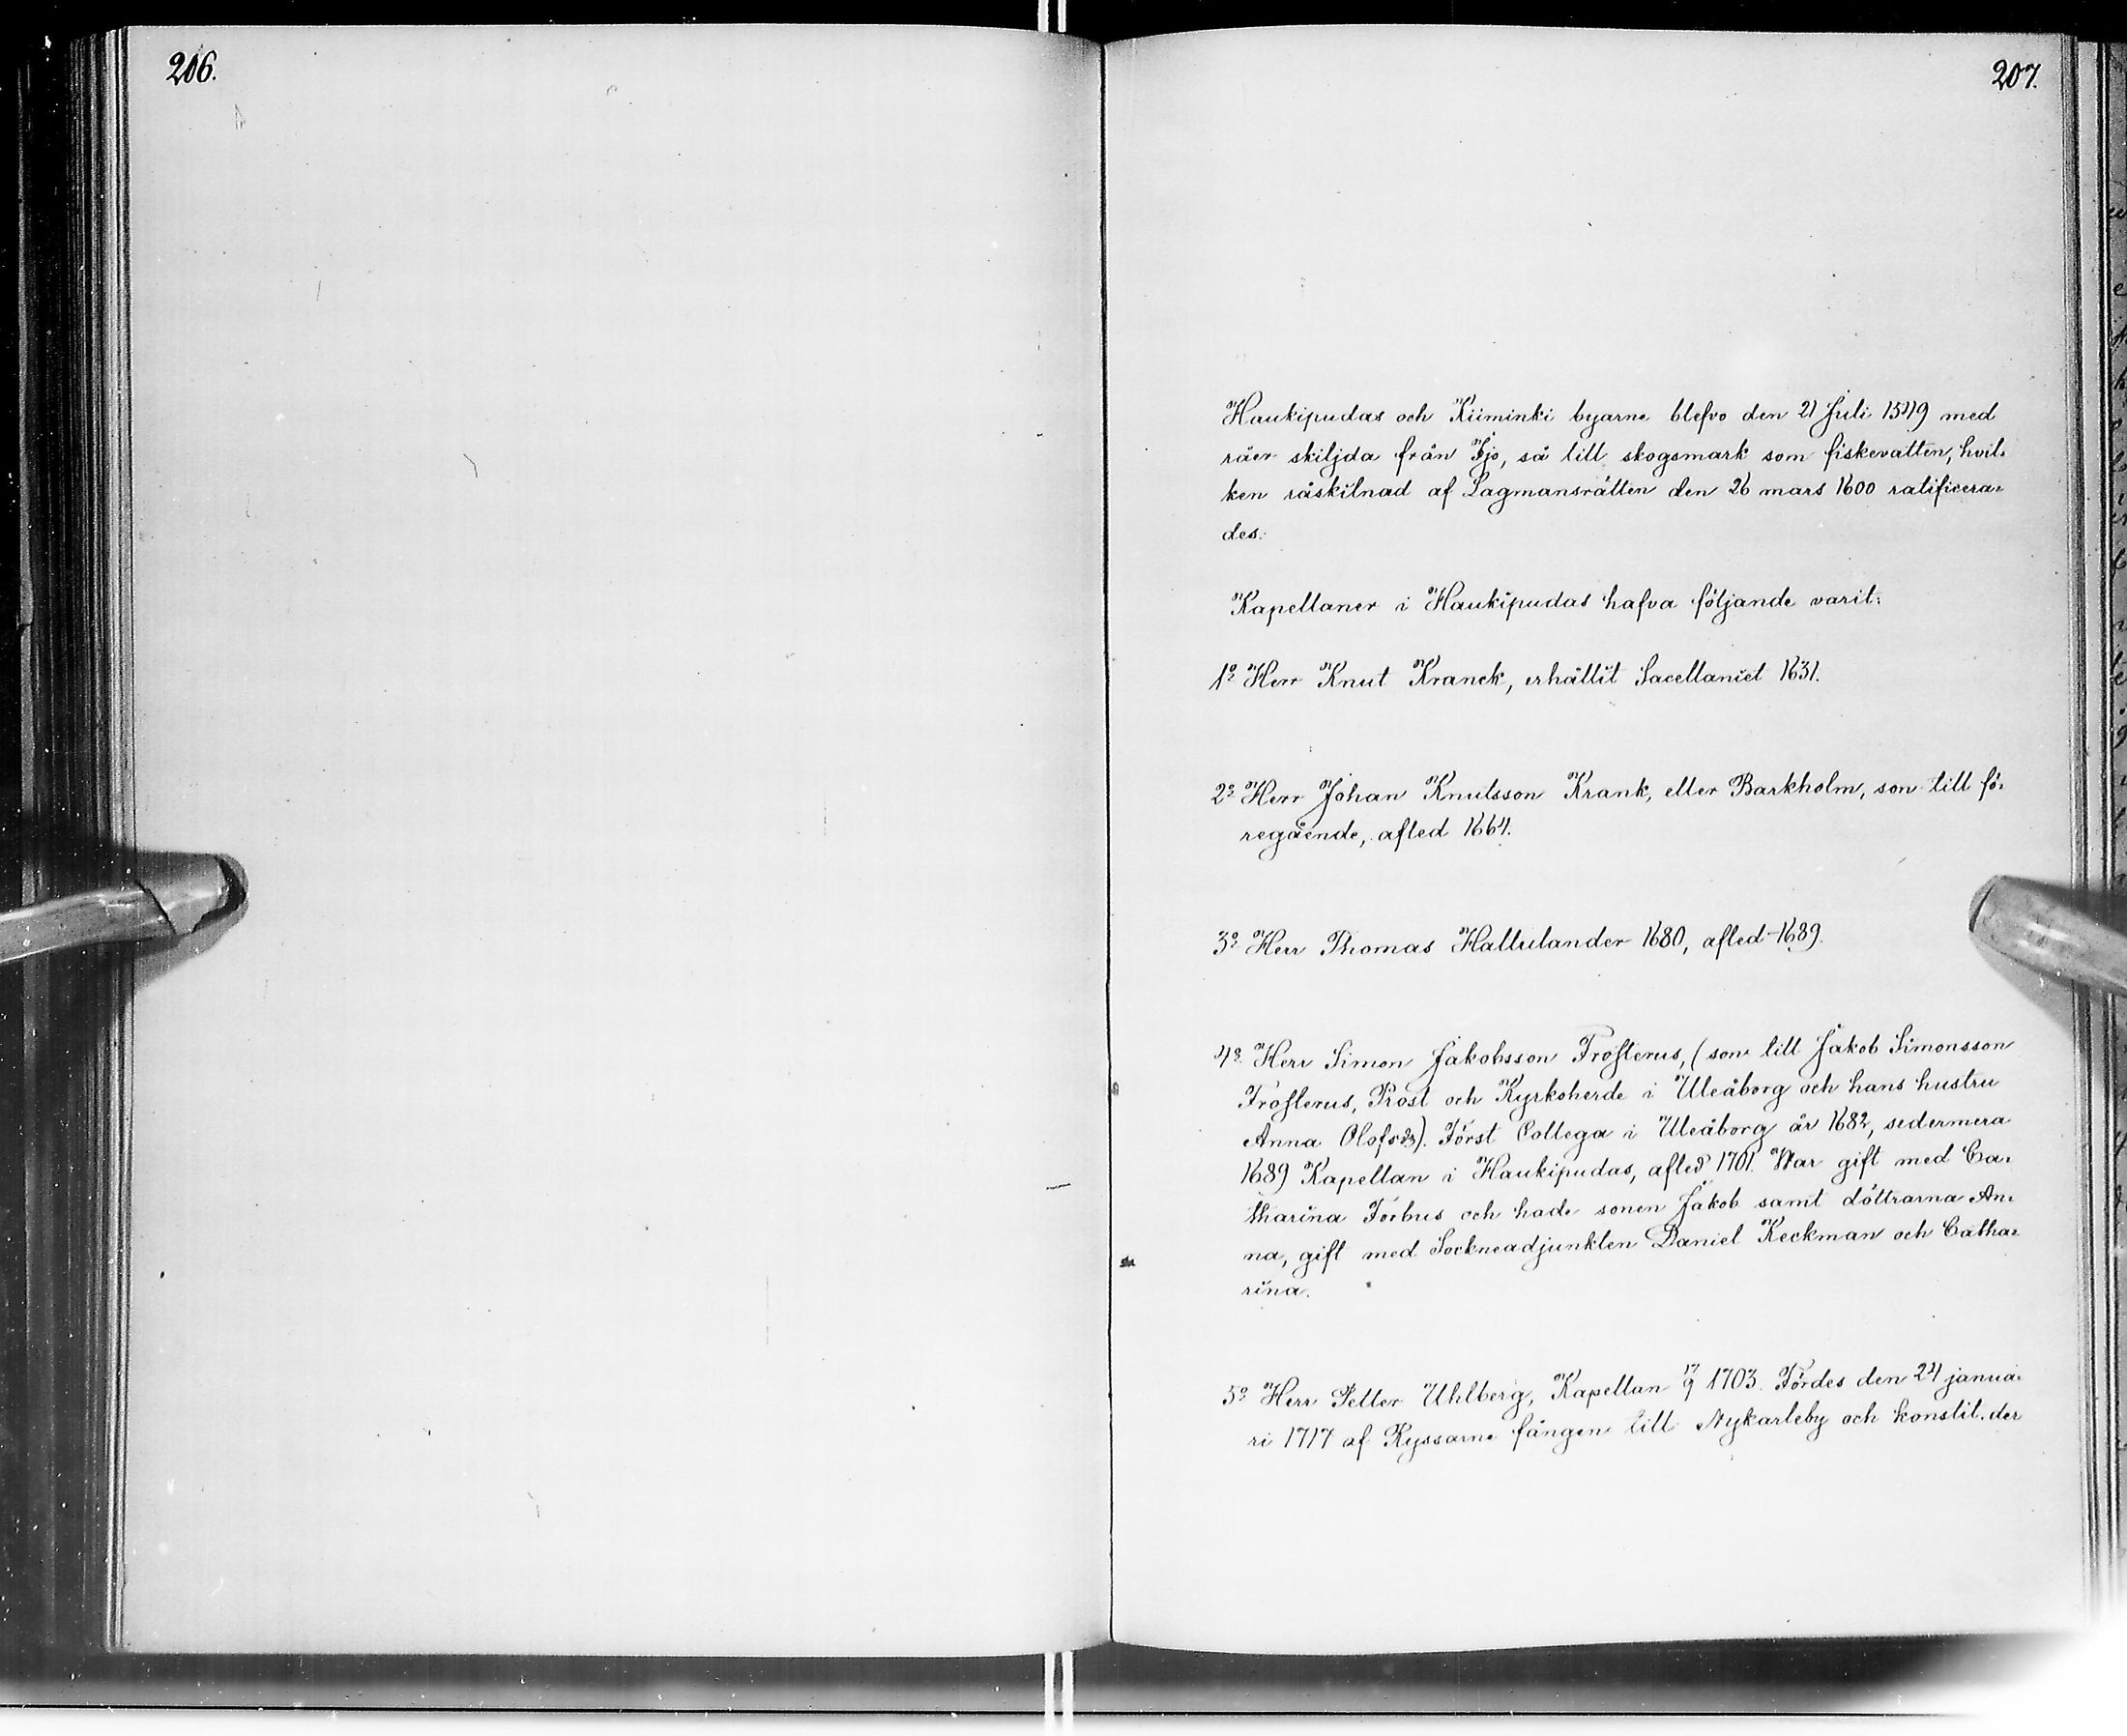 206.
207.
Haukipudas och Kiiminki byarne blefvo den 21 Juli 1549 med
råer skiljda från Ijo, så till skogsmark som fiskevatten, hvil-
ken råskilnad af Lagmansrätten den 26 mars 1600 ratificera-
des.
Kapellaner i Haukipudas hafva följande varit:
1º Herr Knut Kranck, erhållit Sacellaniet 1631.
2º Herr Johan Knutsson Krank, eller Barkholm, son till fö-
regående, afled 1664.
3º Herr Thomas Hallulander 1680, afled 1689.
4º Herr Simon Jakobsson Frosterus, (son till Jakob Simonsson
Frosterus, Prost och Kyrkoherde i Uleåborg och hans hustru
Anna Olofsdr). Först Collega i Uleåborg år 1682, sedermera
1689 Kapellan i Haukipudas, afled 1701. War gift med Ca-
tharina Forbus och hade sonen Jakob samt döttrarna An-
na, gift med Sockneadjunkten Daniel Keckman och Catha-
rina.
5º Herr Petter Uhlberg, Kapellan 17/9 1703. Fördes den 24 janua-
ri 1717 af Ryssarne fången till Nykarleby och konstit. der